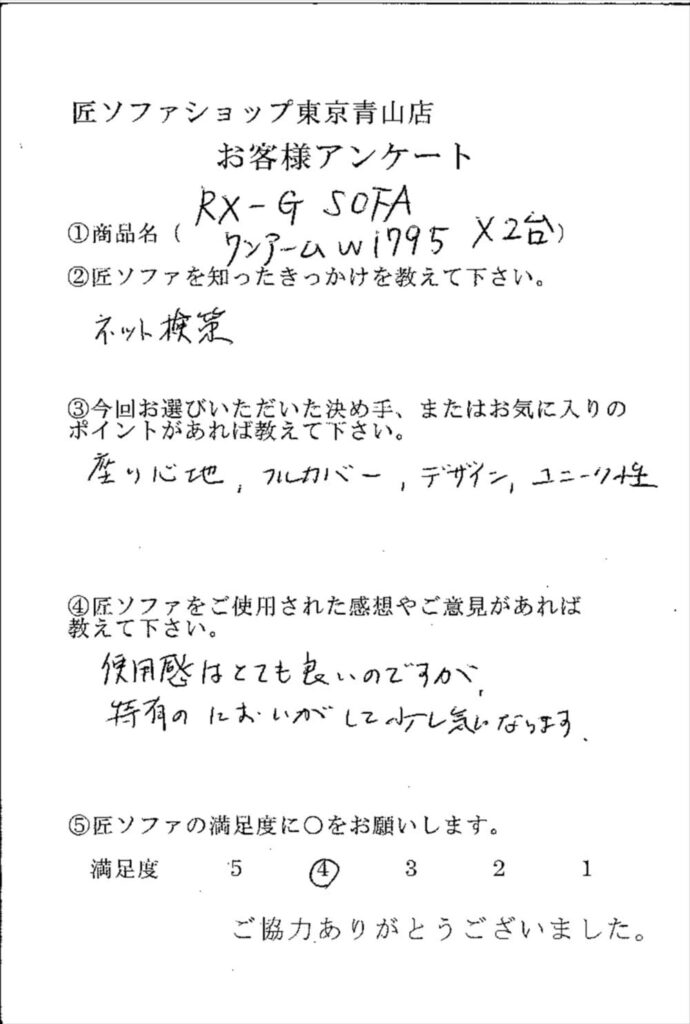 匠ソファショップ東京青山店
お客様アンケート
RX-G SOFA
①商品名（ ワンアームW1795 ×2台）
②匠ソファを知ったきっかけを教えて下さい。
ネット検策
③今回お選びいただいた決め手、またはお気に入りの
ポイントがあれば教えて下さい。
座り心地, フルカバー, デザイン, ユニーク性
④匠ソファをご使用された感想やご意見があれば
教えて下さい。
使用感はとても良いのですが、
特有のにおいがして少し気になります.
⑤匠ソファの満足度に○をお願いします。
満足度 5 ④ 3 2 1
ご協力ありがとうございました。